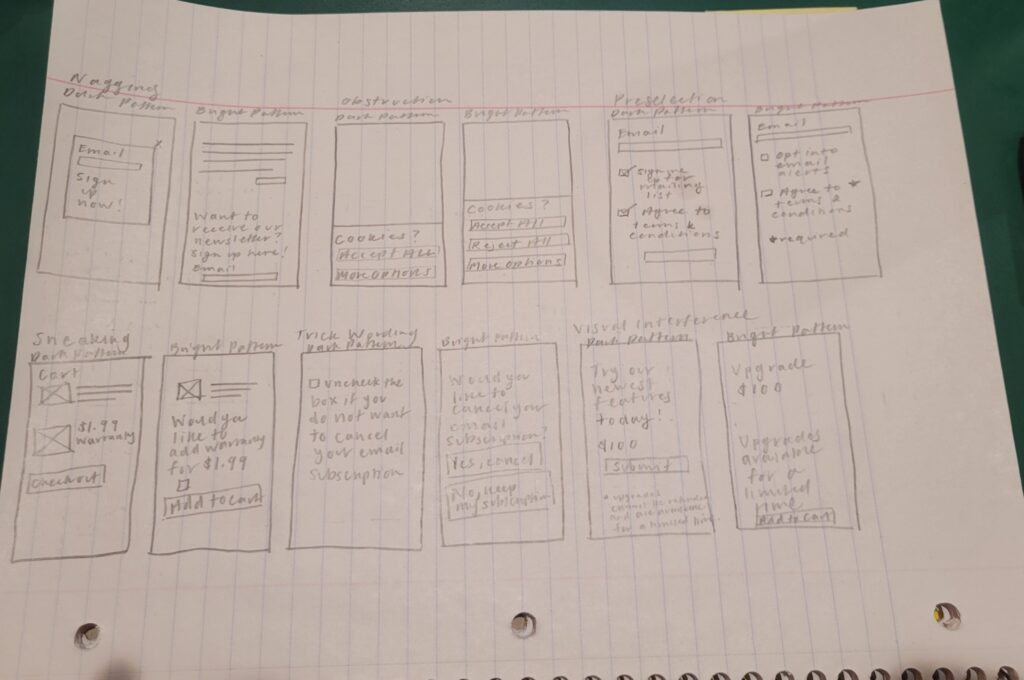 Nagging
Dark Pattern
Email
x
Sign
up
now!
Bright Pattern
Want to
receive our
newsletter?
Sign up here!
Email
Obstruction
Dark Pattern
Cookies?
Accept All
More options
Bright Pattern
Cookies?
Accept All
Reject All
More options
Preselection
Dark Pattern
Email
Sign me
up for
mailing
list
Agree to
terms &
conditions
Bright Pattern
Email
Opt into
email
alerts
Agree to *
terms &
conditions
*required
Sneaking
Dark Pattern
Cart
$1.99
warranty
Checkout
Bright Pattern
Would you
like to
add warranty
for $1.99
Add to cart
Trick Wording
Dark Pattern
Uncheck the
box if you
do not want
to cancel
your email
subscription
Bright Pattern
Would you
like to
cancel your
email
subscription?
Yes, cancel
No, keep
my subscription
Visual Interference
Dark Pattern
Try our
newest
features
today!
$100
Submit
* upgrades
cannot be refunded
and are available
for a limited time
Bright Pattern
Upgrade
$100
Upgrades
available
for a
limited
time
Add to cart